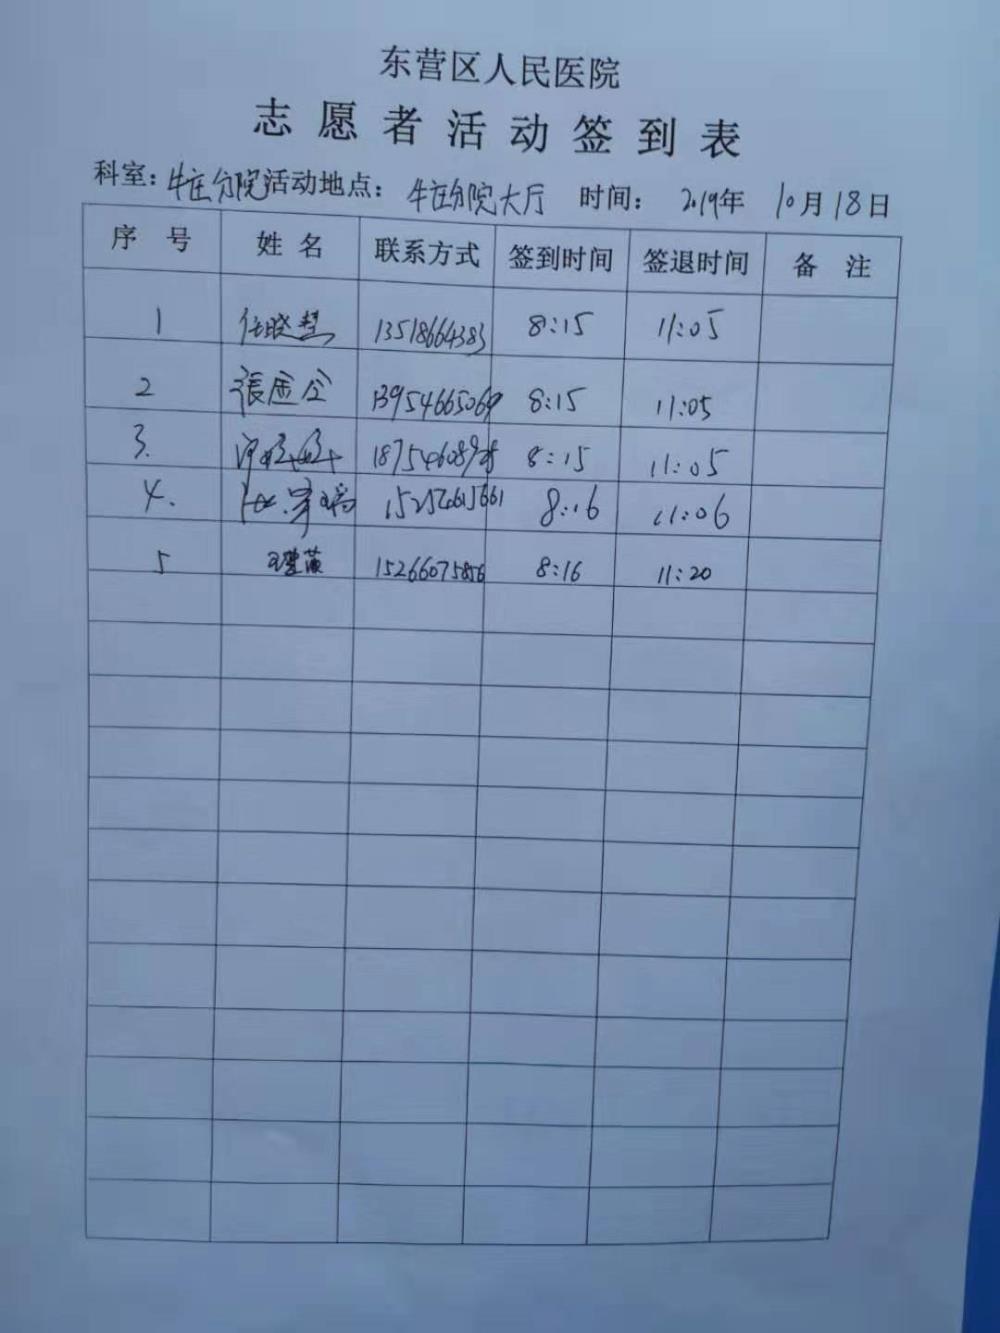 东营区人民医院
志愿者活动签到表
科室：牛庄分院 活动地点：牛庄分院大厅 时间：2019年 10月18日
序 号 姓 名 联系方式 签到时间 签退时间 备 注
1 任晓慧 13518664383 8:15 11:05
2 張金全 13954665069 8:15 11:05
3. 8:15 11:05
4. 8:16 11:06
5 15266075856 8:16 11:20